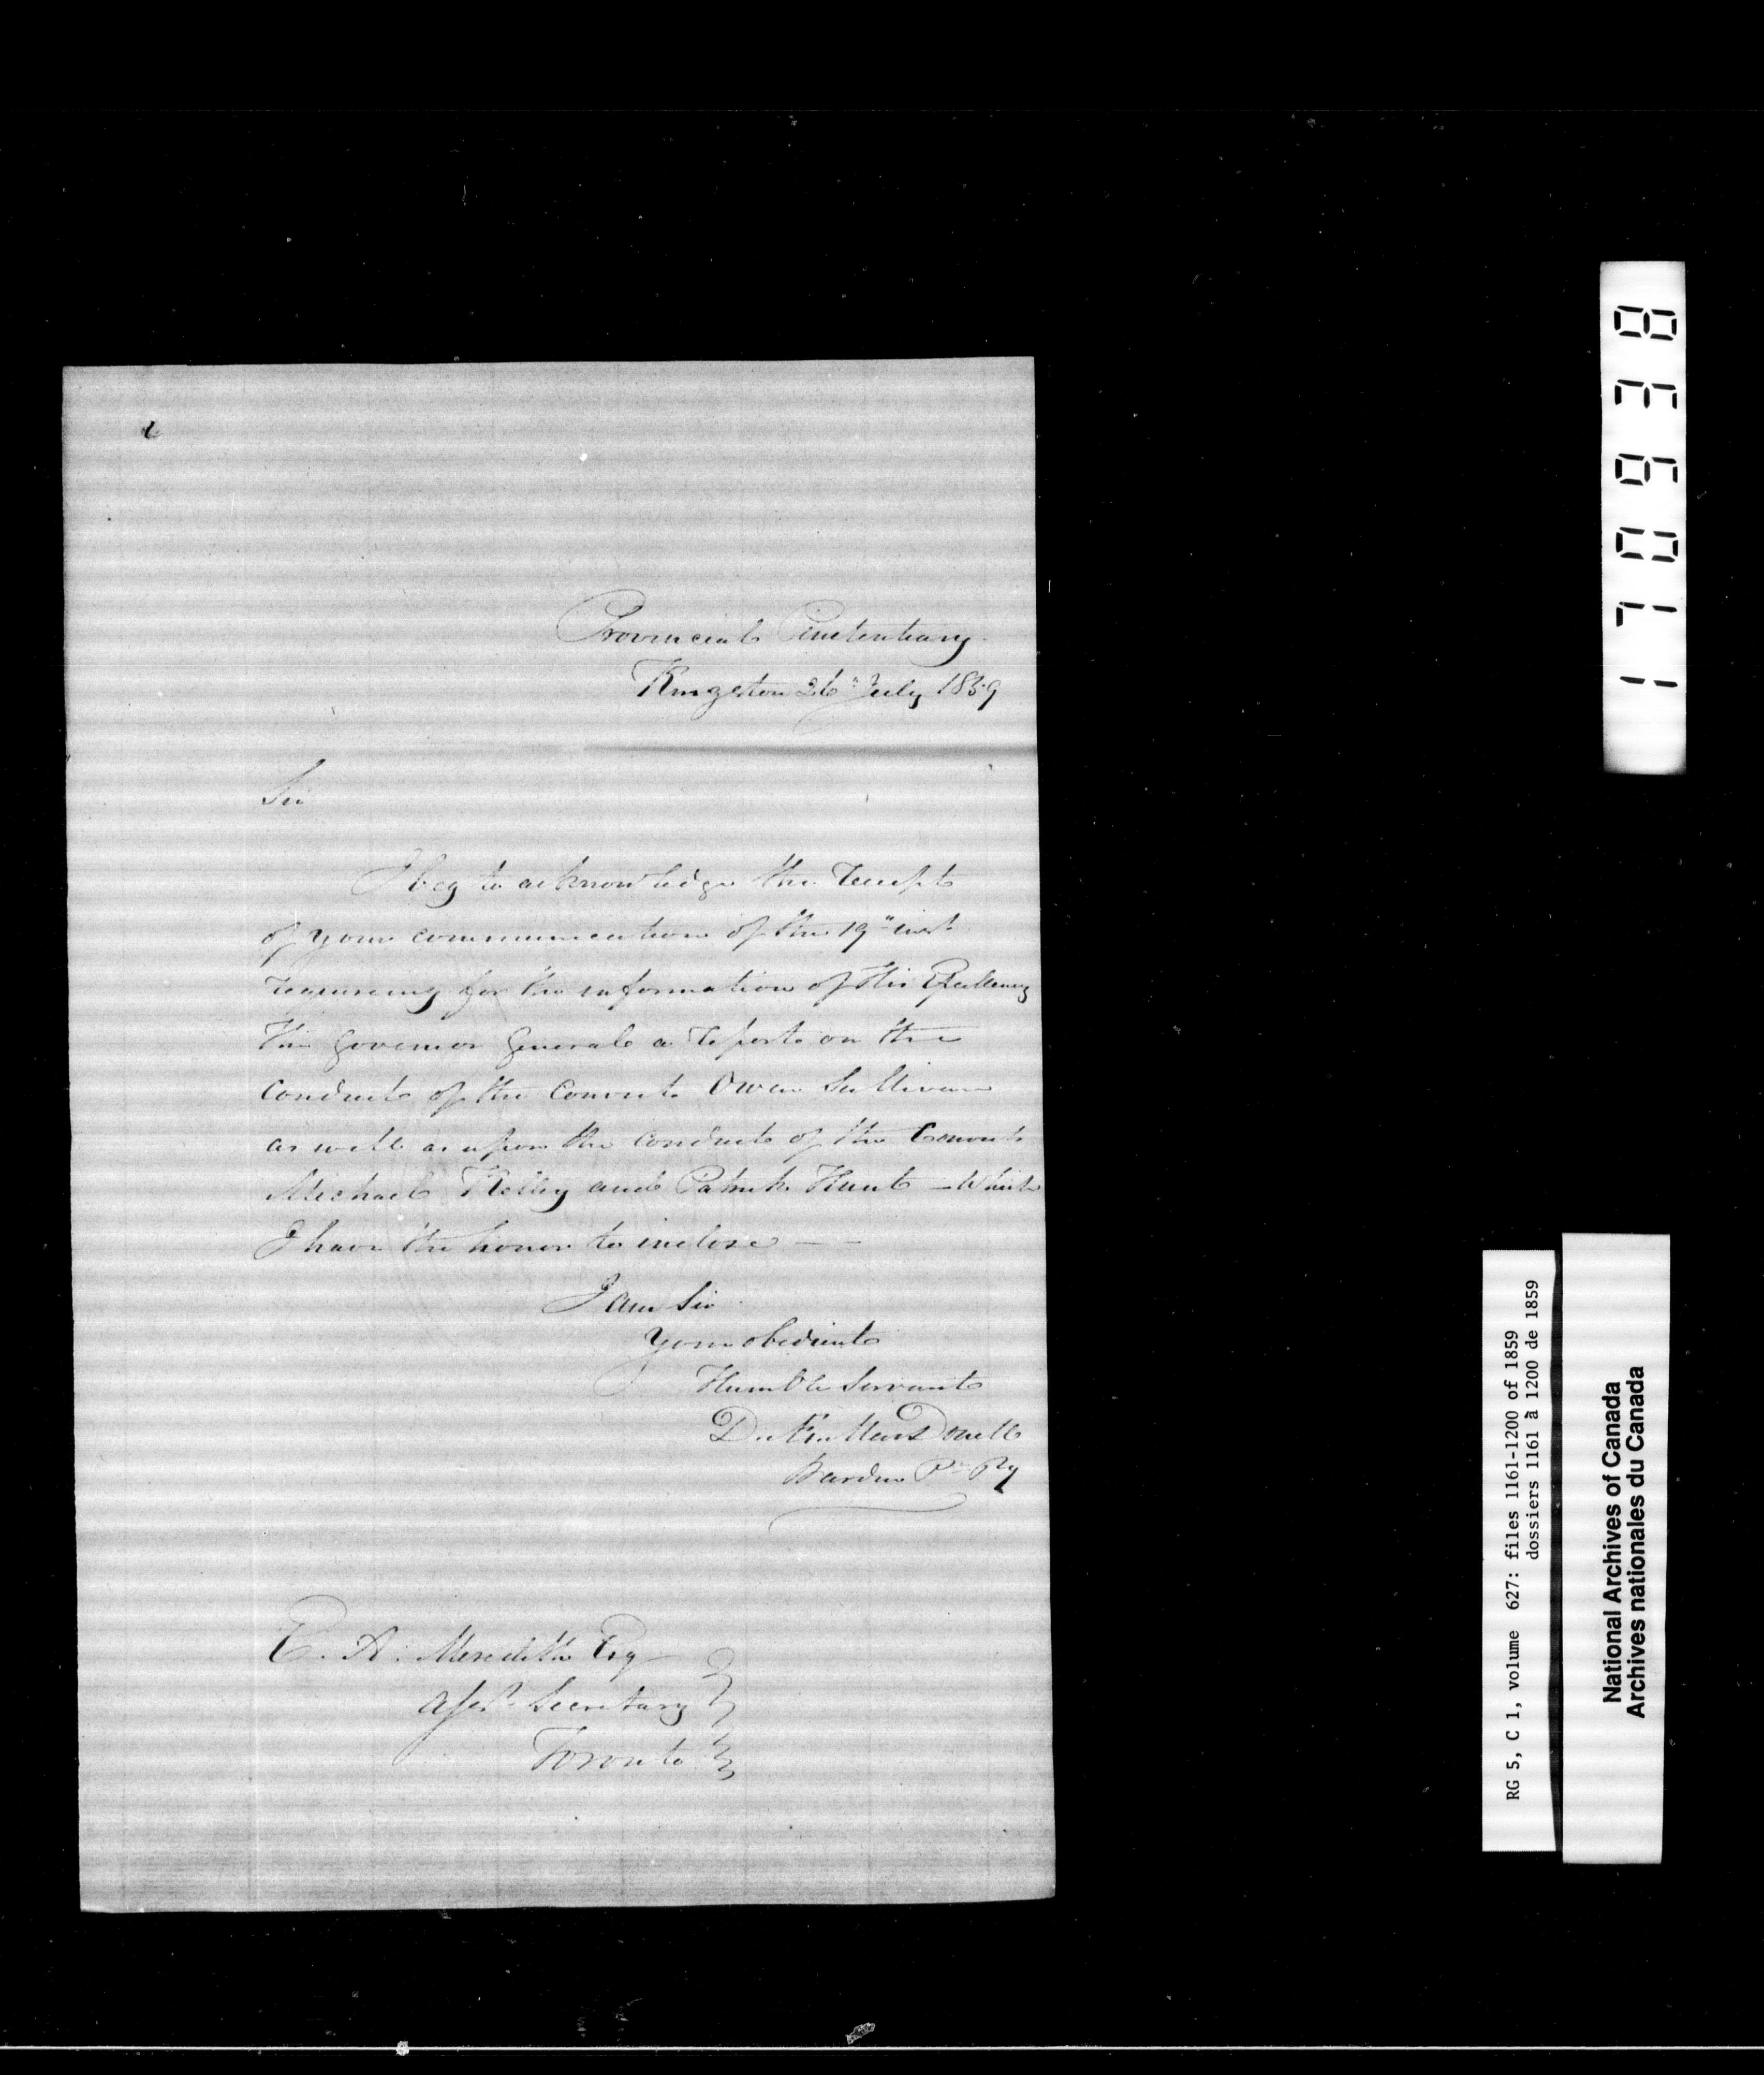 Provincial Penetentiary
Kingston 26" July 1859
Sir
I beg to acknowledge the receipt
of your communication of the 19" inst
requiring for the information of His Excellency
the Governor General a report on the
conduct of the Convict Owen Sullivan
as well as upon the conduct of the Convicts
Michael Kelly and Patrick Hunt – Which
I have the honor to inclose — —
I am Sir
Your obedient
Humble Servant
D. Æ. MacDonell
Warden P. Py
E. A. Meredith Esq
Asst. Secretary
Toronto
110938
RG 5, C 1, volume 627: files 1161-1200 of 1859
dossiers 1161 à 1200 de 1859
National Archives of Canada
Archives nationales du Canada